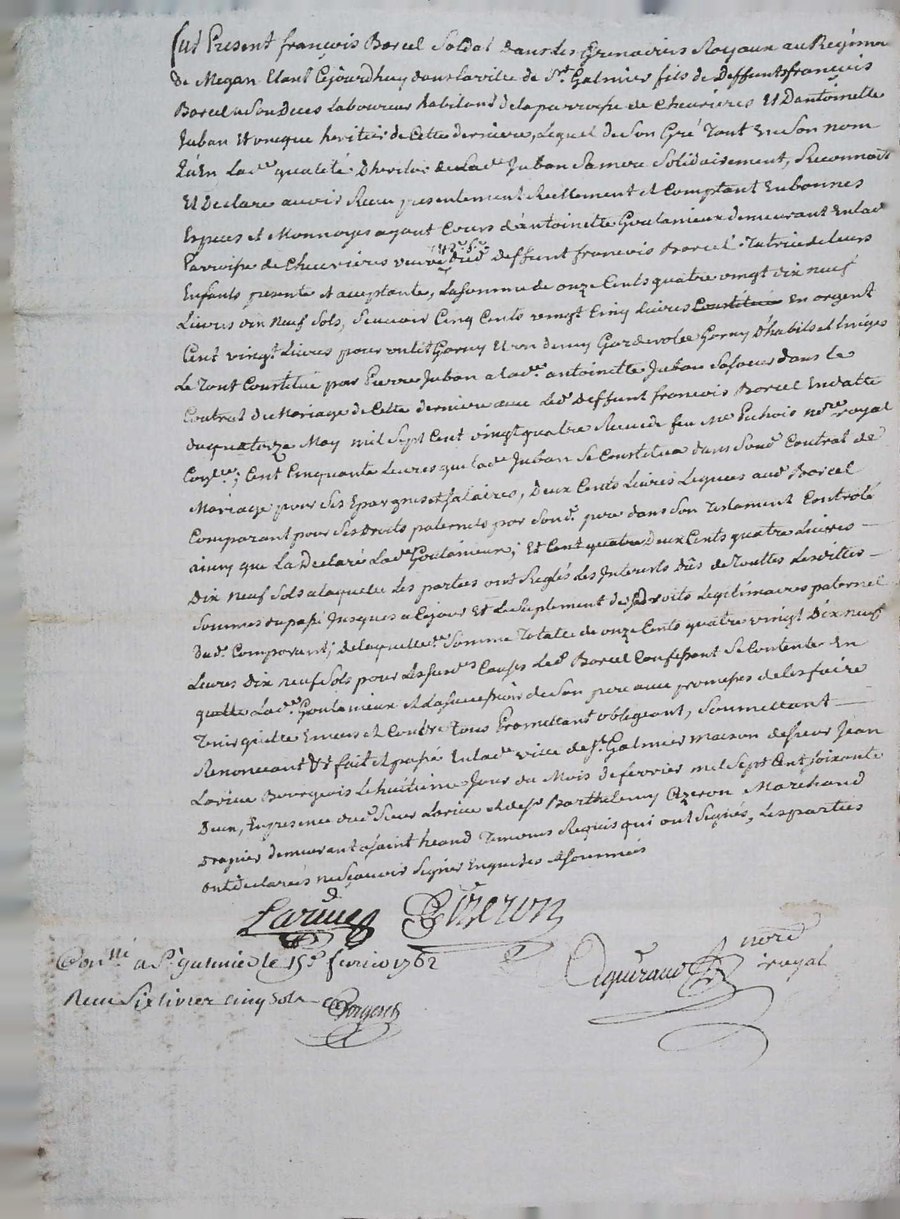 fut Present françois Borcel Soldat dans Les Grenadiers Royaux au Regiment
de Megan Etant Cejourdhuy dans la ville de St. Galmier fils de Deffunts françois
Borcel a Son Deces Laboureur habitand de la parroisse de Cheurieres Et D'antoinette
Juban Et unique heritier de Cette derniere, Lequel de Son Gré Tant En Son nom
qu'En La de. qualité D'heritier de La de. Juban Sa mere Solidairement, Reconnoit
Et Declare avoir Receu presentement Reellement et Comptant En bonnes
Especes et Monnoyes ayant Cours d'antoinette Goutanieux demeurant En lad.
Parroisse de Cheurieres veuve dud. deffunt françois Borcel Tutrice de leurs
Enfants presente et acceptante, La somme de onze Cents quatre vingt dix neuf
Livres dix Neuf Sols, Scavoir Cinq Cents vingt Cinq Livres Constituée En argent
Cent vingt Livres pour un lit Garny Et un demy Garderobe Garny D'habits et Linges
Le Tout Constitué par Pierre Juban a la de. antoinette Juban Sa soeur dans le
Contrat de Mariage de Cette derniere avec Led. Deffunt françois Borcel En datte
du quatorze May mil Sept Cent vingt quatre Receu de feu Me. Puhois nore. royal
Con.lé; Cent Cinquante Livres que lad. Juban Se Constitua dans Son d. Contrat de
Mariage pour Ses Epargnes et Salaires, Deux Cents Livres Leguées aud. Borcel
Comparant pour Ses Droits paternels par Sond. pere dans Son Testament Controlé
ainsy que La Declaré La de. Goutanieux; Et Cent quatre Deux Cents quatre Livres
Dix neuf Sols a laquelle Les parties ont Reglés Les Interets Dûs de Touttes Les dittes
Sommes du passé Jusques a Cejour Et Le Suplement des droits Legitimaires paternel
Dud. Comparant; De laquelle de. Somme Totalle de onze Cents quatre vingt Dix neuf
Livres Dix neuf Sols pour Les susd. Causes Led. Borcel Confessant Se Contente En
quitte La de. Goutanieux et La succession de Son pere avec promesses de Les faire
Tenir quitte Envers et Contre tous Promettant obligeant, Soumettant
Renonceant &t fait et passé En lad. ville de St. Galmier maison de Sieur Jean
Larive Bourgeois Le huitieme Jour du Mois de fevrier mil Sept Cent Soixante
Deux, En presence dud. Sieur Larive et de Sr. Barthelemy Cizeron Marchand
drapier demeurant a saint heand Temoins Requis qui ont Signés, Les parties
ont Declarées ne Scavoir Signer Enquises et Sommées
Larive Cizeron
nore.
royal
Con.llé a St. galmier le 15e. fevrier 1762
Receu Six livres cinq Sols